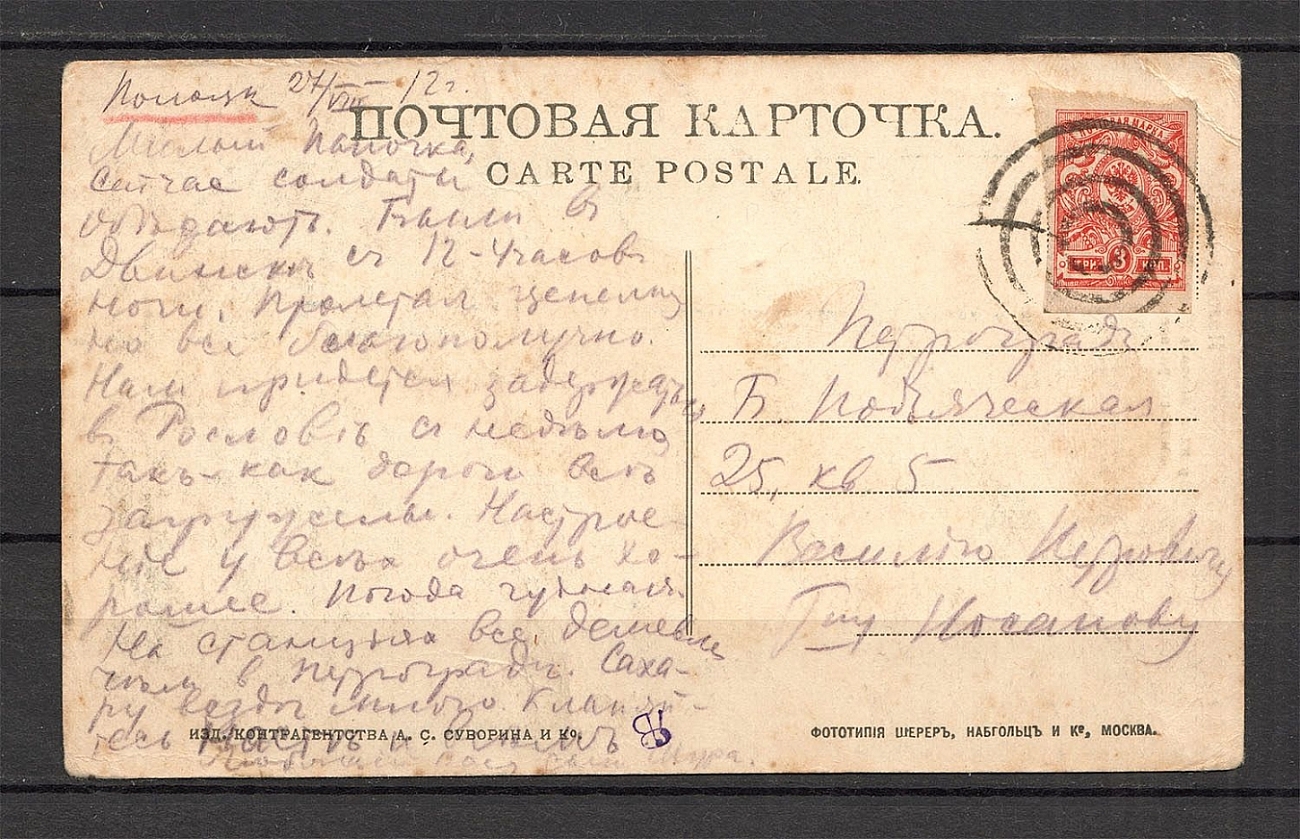 Полоцк 27/VIII – 12 г.
ПОЧТОВАЯ КАРТОЧКА.
CARTE POSTALE.
Милый Папочка,
сейчас солдаты
обѣдаютъ. Были въ
Двинскѣ съ 12-4 часовъ
ночи. Пролетал цепелинъ
но все благополучно.
Нам придется задержаться
въ Рословлѣ с недѣлю
такъ-как дороги всѣ
загружены. Настрое-
ніе у всѣхъ очень хо-
рошее. Погода чудная.
На станціях все дешевле
чѣм в Петроградѣ. Саха-
ру вездѣ много. Кланяй-
тесь
Любящій Вас сын Шура.
ПОЧТОВАЯ МАРКА
ТРИ 3 КОП.
Петроградъ
Б. Подьяческая
25, кв 5
Василію Петровичу
Гну Носанову
ИЗД. КОНТРАГЕНТСТВА А. С. СУВОРИНА И Ко.
ФОТОТИПІЯ ШЕРЕРЪ, НАБГОЛЬЦЪ И Ко, МОСКВА.